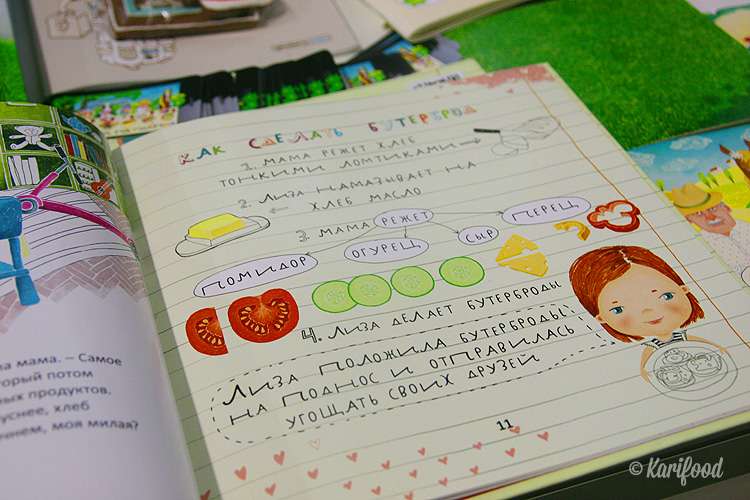 на мама. – Самое
торый потом
ных продуктов.
уснее, хлеб
чнем, моя милая?
КАК СДЕЛАТЬ БУТЕРБРОД
1. МАМА РЕЖЕТ ХЛЕБ
ТОНКИМИ ЛОМТИКАМИ
2. ЛИЗА НАМАЗЫВАЕТ НА
ХЛЕБ МАСЛО
3. МАМА РЕЖЕТ
ПОМИДОР ОГУРЕЦ СЫР ПЕРЕЦ
4. ЛИЗА ДЕЛАЕТ БУТЕРБРОДЫ
ЛИЗА ПОЛОЖИЛА БУТЕРБРОДЫ
НА ПОДНОС И ОТПРАВИЛАСЬ
УГОЩАТЬ СВОИХ ДРУЗЕЙ
11
© Karifood